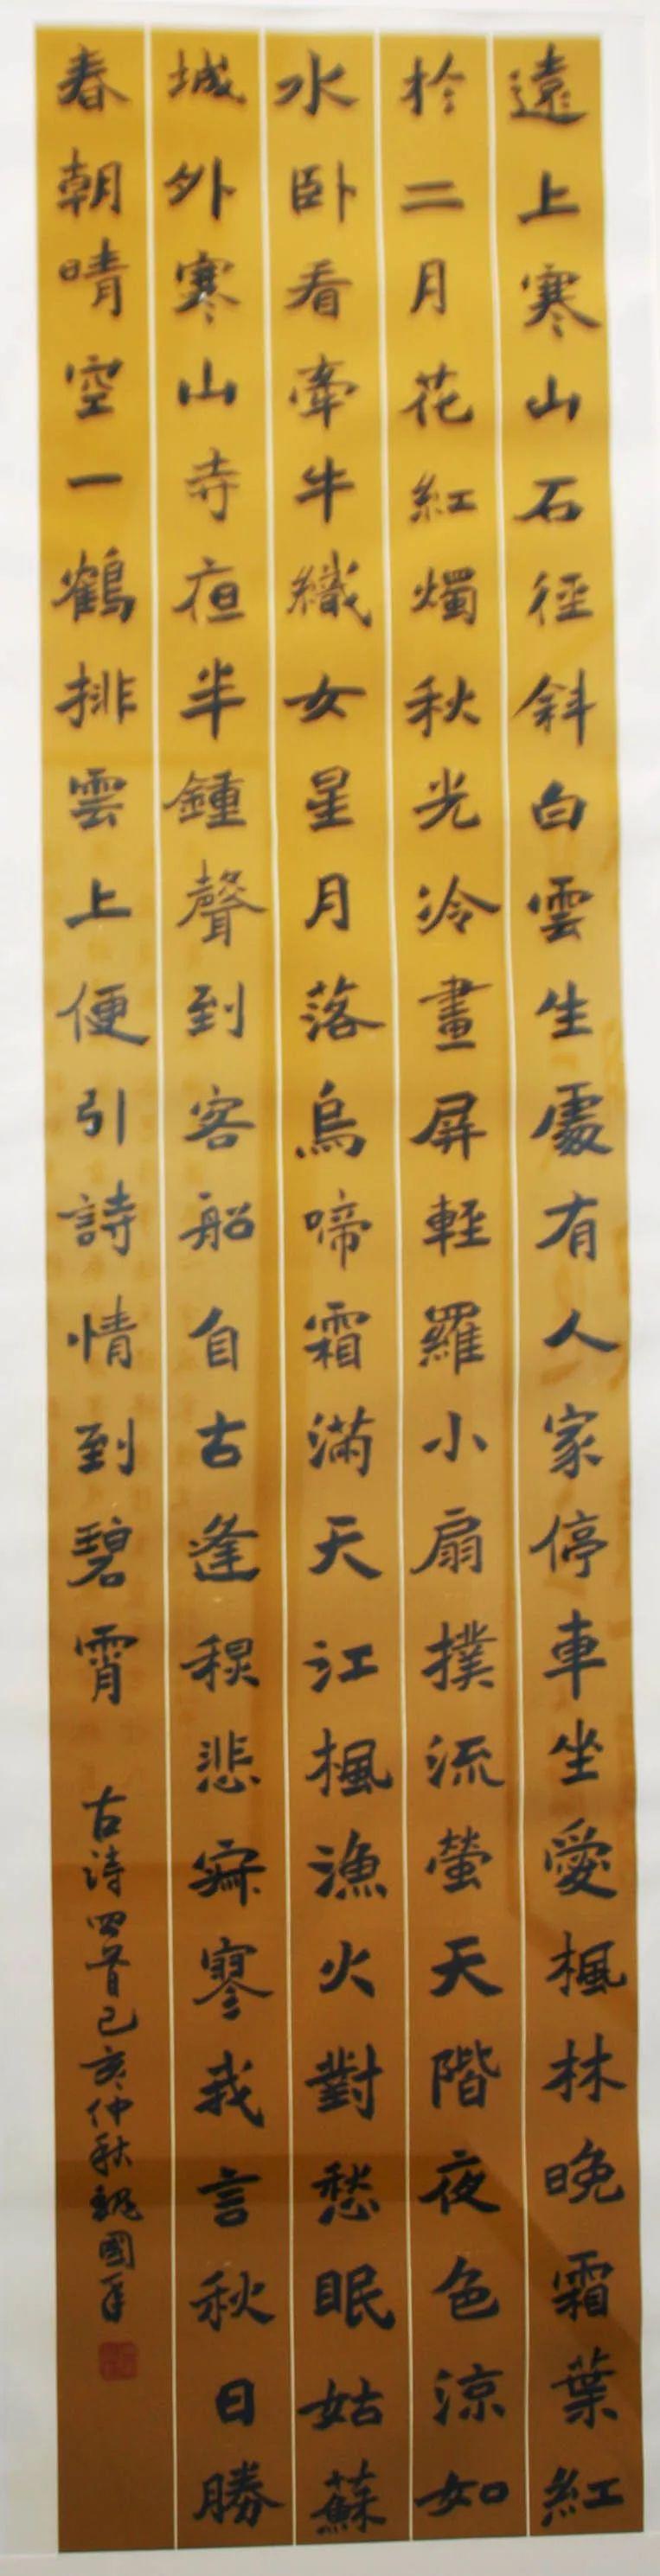 遠上寒山石徑斜白雲生處有人家停車坐愛楓林晚霜葉紅
於二月花紅燭秋光冷畫屏輕羅小扇撲流螢天階夜色涼如
水卧看牽牛織女星月落烏啼霜滿天江楓漁火對愁眠姑蘇
城外寒山寺亱半鍾聲到客船自古逢秋悲寂寥我言秋日勝
春朝晴空一鶴排雲上便引詩情到碧霄 古诗四首己亥仲秋魏國